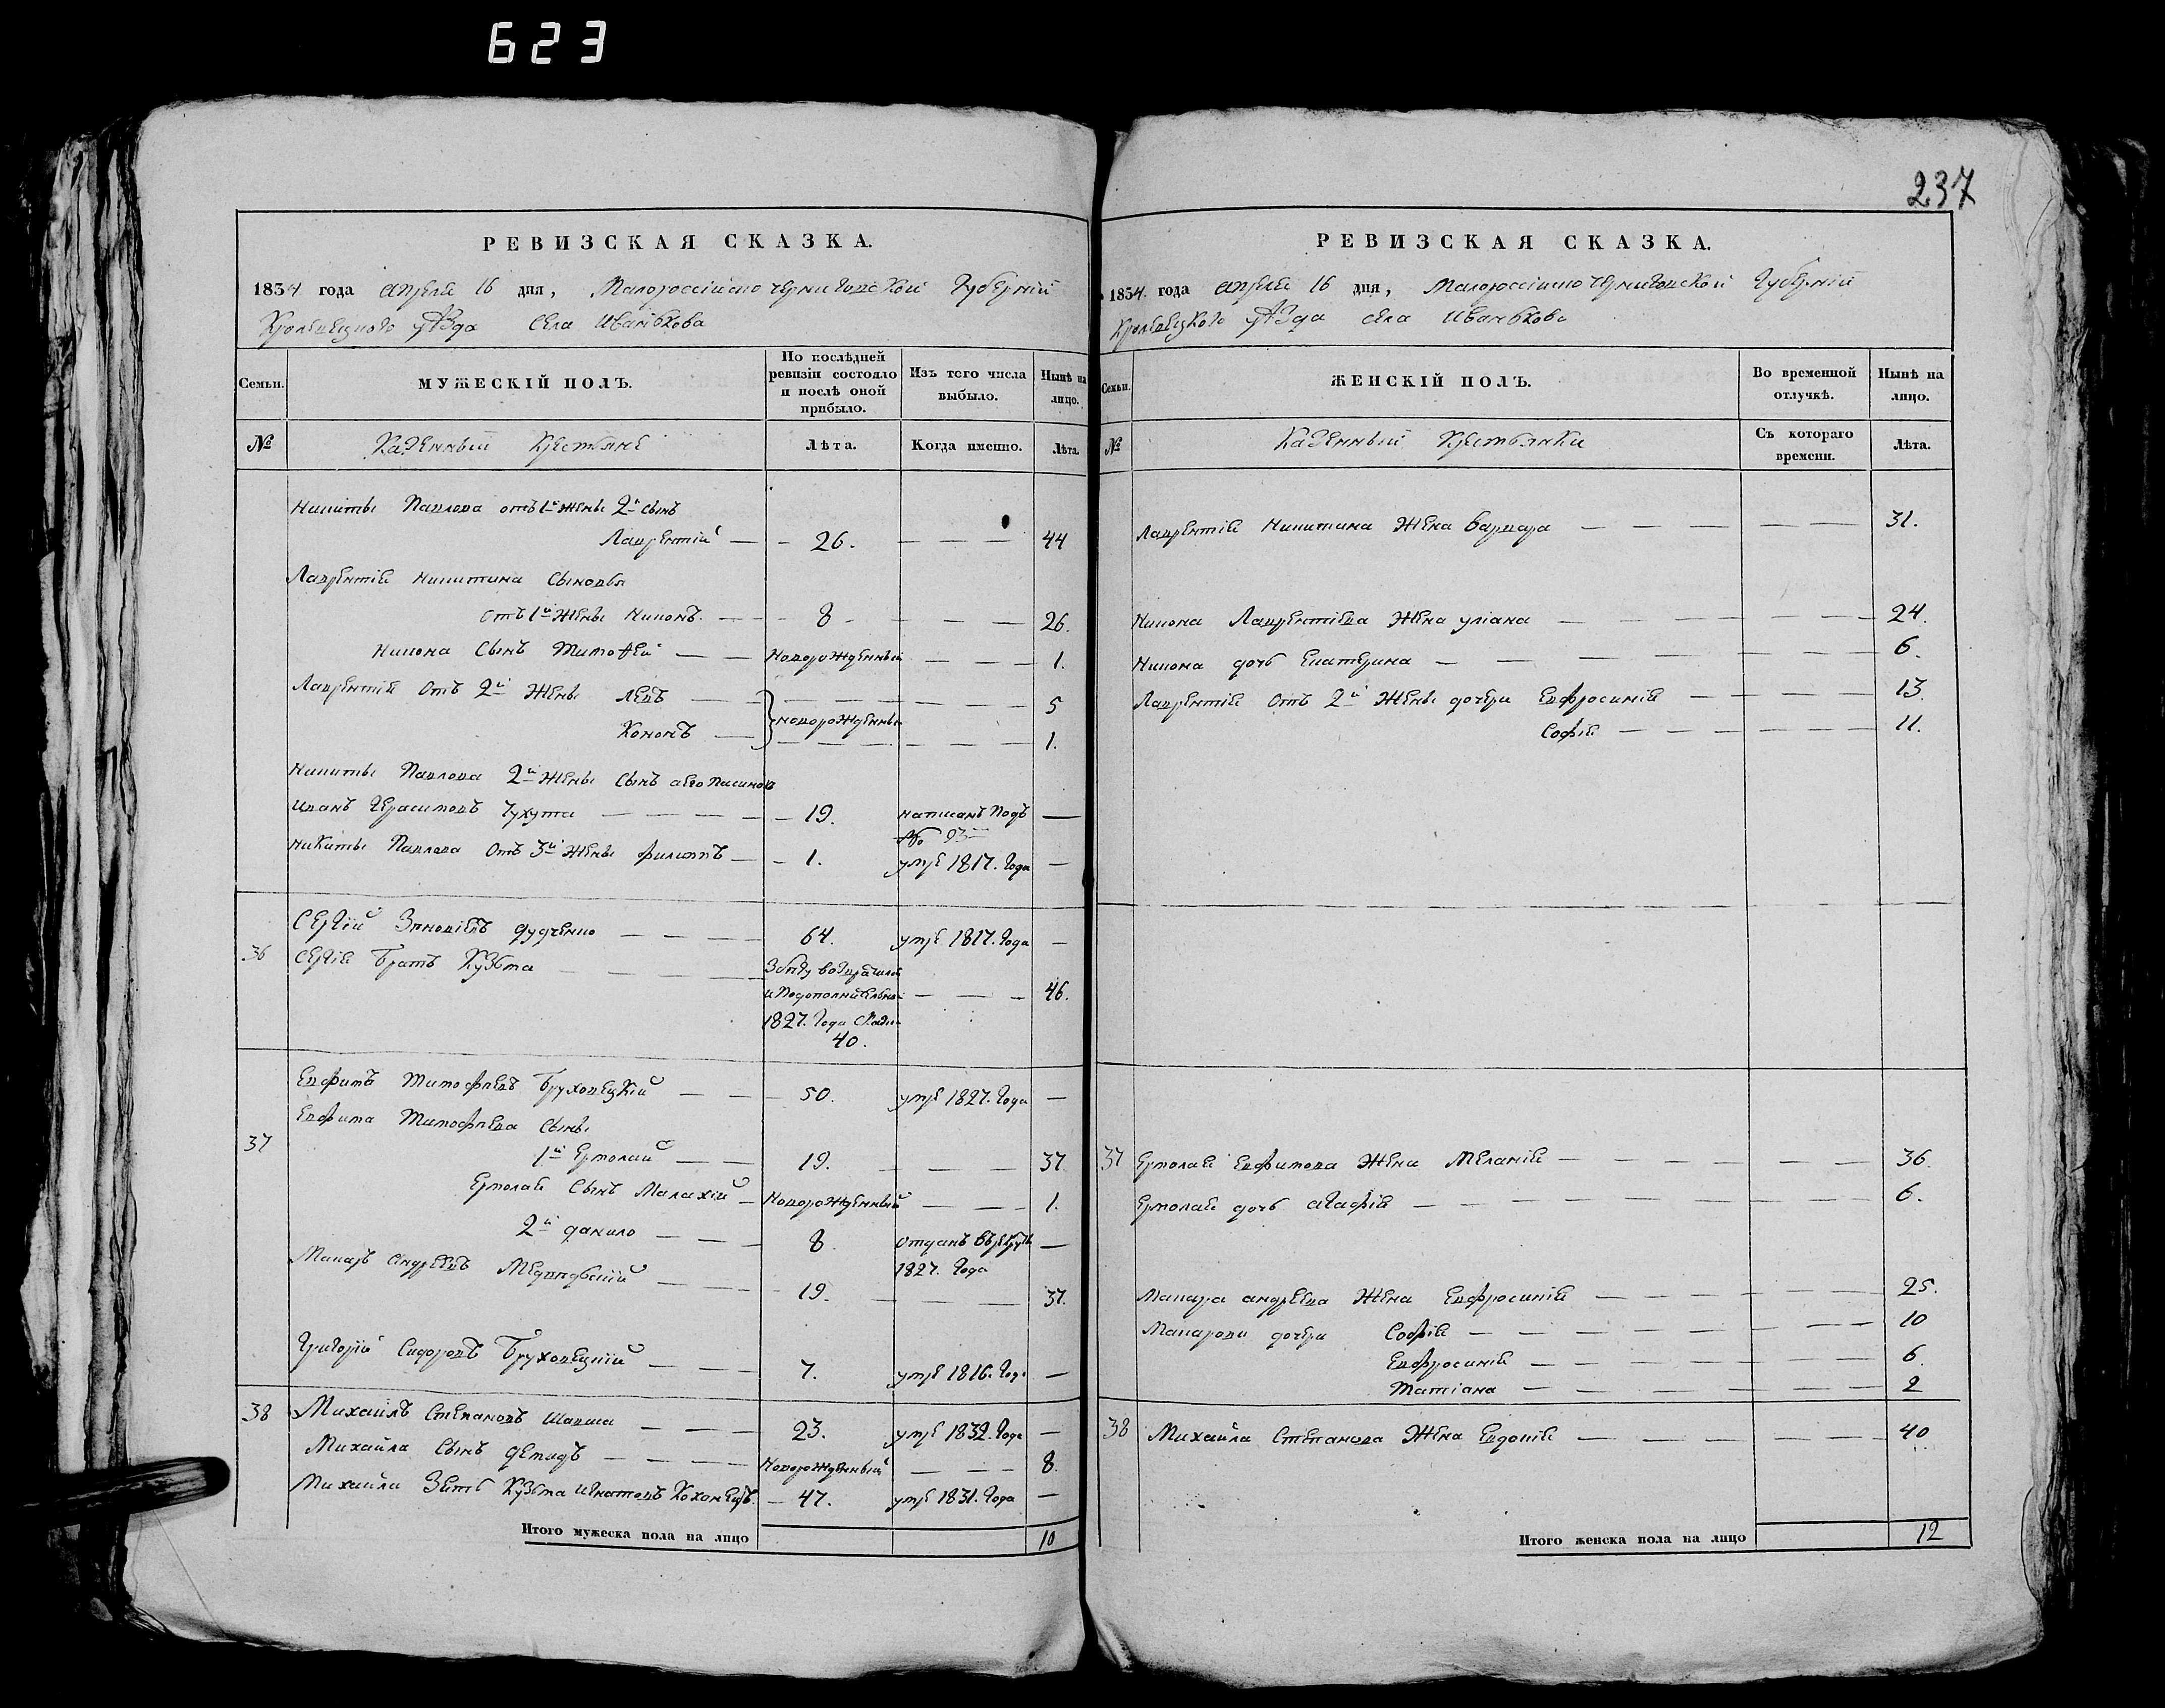 623
237
РЕВИЗСКАЯ СКАЗКА.
1834 года апреля 16 дня, Малороссийско черниговской Губернии
Кролевецкого уѣзда Села Иванькова
Семьи. МУЖЕСКІЙ ПОЛЪ. По послѣдней ревизіи состояло и послѣ оной прибыло. Изъ того числа выбыло. Нынѣ на лицо.
№ Казенный Крестьяне Лѣта. Когда именно. Лѣта.
Никиты Павлова отъ 1й жены 2й сынъ
Лаврентій — 26. — — — 44
Лаврентія Никитина сыновья
отъ 1й жены Никонъ. — 8 — — — 26.
Никона сынъ Тимофей — Новорожденный — — — 1.
Лаврентія отъ 2й жены Левъ — — — — 5
новорожденные
Кононъ — — — — 1.
Никиты Павлова 2й жены сынъ а его пасинокъ
Иванъ Герасимовъ Чухута — — — 19. написанъ подъ —
№ 93
Никиты Павлова отъ 3й жены филиппъ — 1. умре 1817. Года —
36 Сергій Зиновіевъ дудченко — — — 64. умре 1817. Года —
Сергія братъ Кузьма — — — Збѣгу возвратился
и подополнительной — — — 46.
1827. Года сказки
40.
Евфимъ Тимофеевъ Бруховецкій — — 50. умре 1827. Года —
Евфима Тимофеева сыны
37 1й Ермолай — — 19. — — — 37.
Ермолая сынъ Малахій — Новорожденный — — — 1.
2й данило — — — 8. отданъ врекруты —
1827. Года
Макаръ Андреевъ Медведьскій — — — 19. — — — 37.
Григорій Сидоровъ Бруховецкій — — — 7. умре 1816. Года —
38 Михаилъ Степановъ Шапша — — — 23. умре 1832. Года —
Михайла сынъ демидъ — — — — Новорожденный — — — 8.
Михайла Зять Кузьма Игнатовъ Коханецъ. — 47. умре 1831. Года —
Итого мужеска пола на лицо 10
РЕВИЗСКАЯ СКАЗКА.
1834. года апреля 16 дня, Малороссийско черниговской Губернии
Кролевецкого уѣзда села Иванькова
Семьи. ЖЕНСКІЙ ПОЛЪ. Во временной отлучкѣ. Нынѣ на лицо.
№ Казенный Крестьянки Съ котораго времени. Лѣта.
Лаврентія Никитина жена Варвара — — — — — — 31.
Никона Лаврентіева жена уліана — — — — — — 24.
Никона дочь Екатерина — — — — — — 6.
Лаврентія отъ 2й жены дочери Евфросинія — — — — — 13
Софія — — — — — — 11.
37 Ермолая Евфимова жена Меланія — — — — — — 36.
Ермолая дочь агафія — — — — — — 6.
Макара андреева жена Евфросинія — — — — — — 25.
Макарови дочери Софія — — — — — — 10
Евфросинія — — — — — — 6.
Татіана — — — — — — 2
38 Михайла Степанова жена Евдокія — — — — — — 40
Итого женска пола на лицо 12